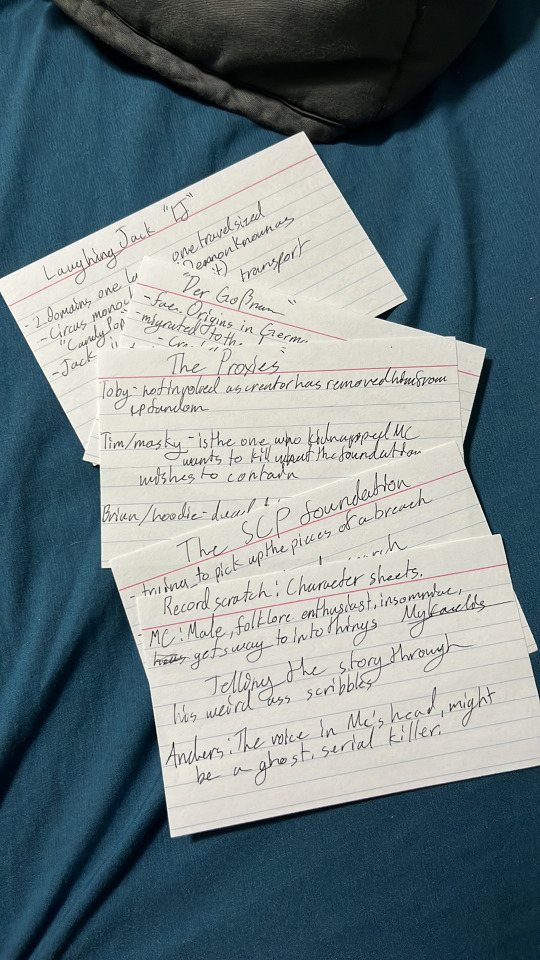 Laughing Jack "LJ"
- 2 Domains, one la one travel sized
- Circus monoch (Demon known as
"Candy Pop" it) transport
- Jack
"Der Großman"
- Fae. Origins in Germ
- migrated to th
The Proxies
Toby - not involved as creator has removed him from
fandom
Tim/masky - is the one who kidnapped MC
wants to kill what the foundation
wishes to contain
Brian/hoodie - dead
The SCP foundation
to pick up the pieces of a breach
Record scratch: Character sheets.
- MC: Male, folklore enthusiast, insomniac,
gets way to into things My
Telling the story through
his weird ass scribbles
Anders: The voice in Mc's head, might
be a ghost. serial killer.